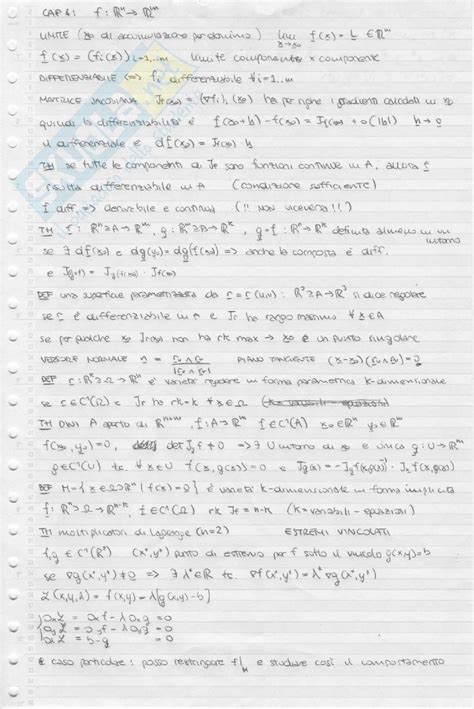 CAP 6: f: ℝⁿ → ℝᵐ
LIMITE (x₀ di accumulazione per dominio) lim x→x₀ f(x) = L ∈ ℝᵐ
f(x) = (fᵢ(x)) i=1,...m limite componente × componente
DIFFERENZIABILE ⟺ fᵢ differenziabile ∀i=1...m
MATRICE JACOBIANA Jf(x₀) = (∇fᵢ), (x₀) ha per righe i gradienti calcolati in x₀
quindi la differenziabilità è f(x₀+h) - f(x₀) = Jf(x₀)h + o(|h|) h→0
il differenziale è df(x₀) = Jf(x₀)·h
TH se tutte le componenti di Jf sono funzioni continue in A, allora f
risulta differenziabile in A (condizione sufficiente)
f diff. ⟹ derivabile e continua (!! NON VICEVERSA !!)
TH f: ℝⁿ⊇A→ℝᵐ, g: ℝᵐ⊇B→ℝᵏ, g∘f: ℝⁿ→ℝᵏ definita almeno in un intorno
se ∃ df(x₀) e dg(y₀) = dg(f(x₀)) ⟹ anche la composta è diff.
e J(g∘f) = Jg(f(x₀)) · Jf(x₀)
DEF una superficie parametrizzata da r = r(u,v): ℝ²⊇A→ℝ³ si dice regolare
se r è differenziabile in A e Jr ha rango massimo ∀x∈A
se per qualche x₀ Jr(x₀) non ha rk max → x₀ è un punto singolare
VERSORE NORMALE n = (rᵤ∧rᵥ)/|rᵤ∧rᵥ| PIANO TANGENTE (x-x₀)(rᵤ∧rᵥ)=0
DEF r: ℝᵏ⊇Ω→ℝⁿ è varietà regolare in forma parametrica k-dimensionale
se r∈C¹(Ω) e Jr ha rk=k ∀x∈Ω
TH DINI A aperto di ℝⁿ⁺ᵐ, f: A→ℝᵐ f∈C¹(A) x₀∈ℝⁿ y₀∈ℝᵐ
f(x₀,y₀)=0, det Jyf≠0 ⟹ ∃ U intorno di x₀ e unica g: U→ℝᵐ
g∈C¹(U) tc. ∀x∈U f(x,g(x))=0 e Jg(x) = -Jyf(x,g(x))⁻¹ · Jxf(x,g(x))
DEF M={x∈Ω⊇ℝⁿ | f(x)=0} è varietà k-dimensionale in forma implicita
f: ℝⁿ⊇Ω→ℝⁿ⁻ᵏ, f∈C¹(Ω) rk Jf = n-k (k = variabili - equazioni)
TH moltiplicatori di Lagrange (n=2) ESTREMI VINCOLATI
f,g∈C¹(ℝ²) (x*,y*) punto di estremo per f sotto il vincolo g(x,y)=b
se ∇g(x*,y*)≠0 ⟹ ∃ λ*∈ℝ tc. ∇f(x*,y*) = λ*∇g(x*,y*)
ℒ(x,y,λ) = f(x,y) - λ[g(x,y)-b]
∂xℒ = ∂xf - λ∂xg = 0
∂yℒ = ∂yf - λ∂yg = 0
∂λℒ = b-g = 0
caso particolare: posso restringere f|M e studiare così il comportamento